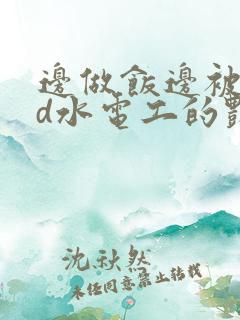 邊做飯邊被
d水電工的
沈秋然
未任同意禁止转载